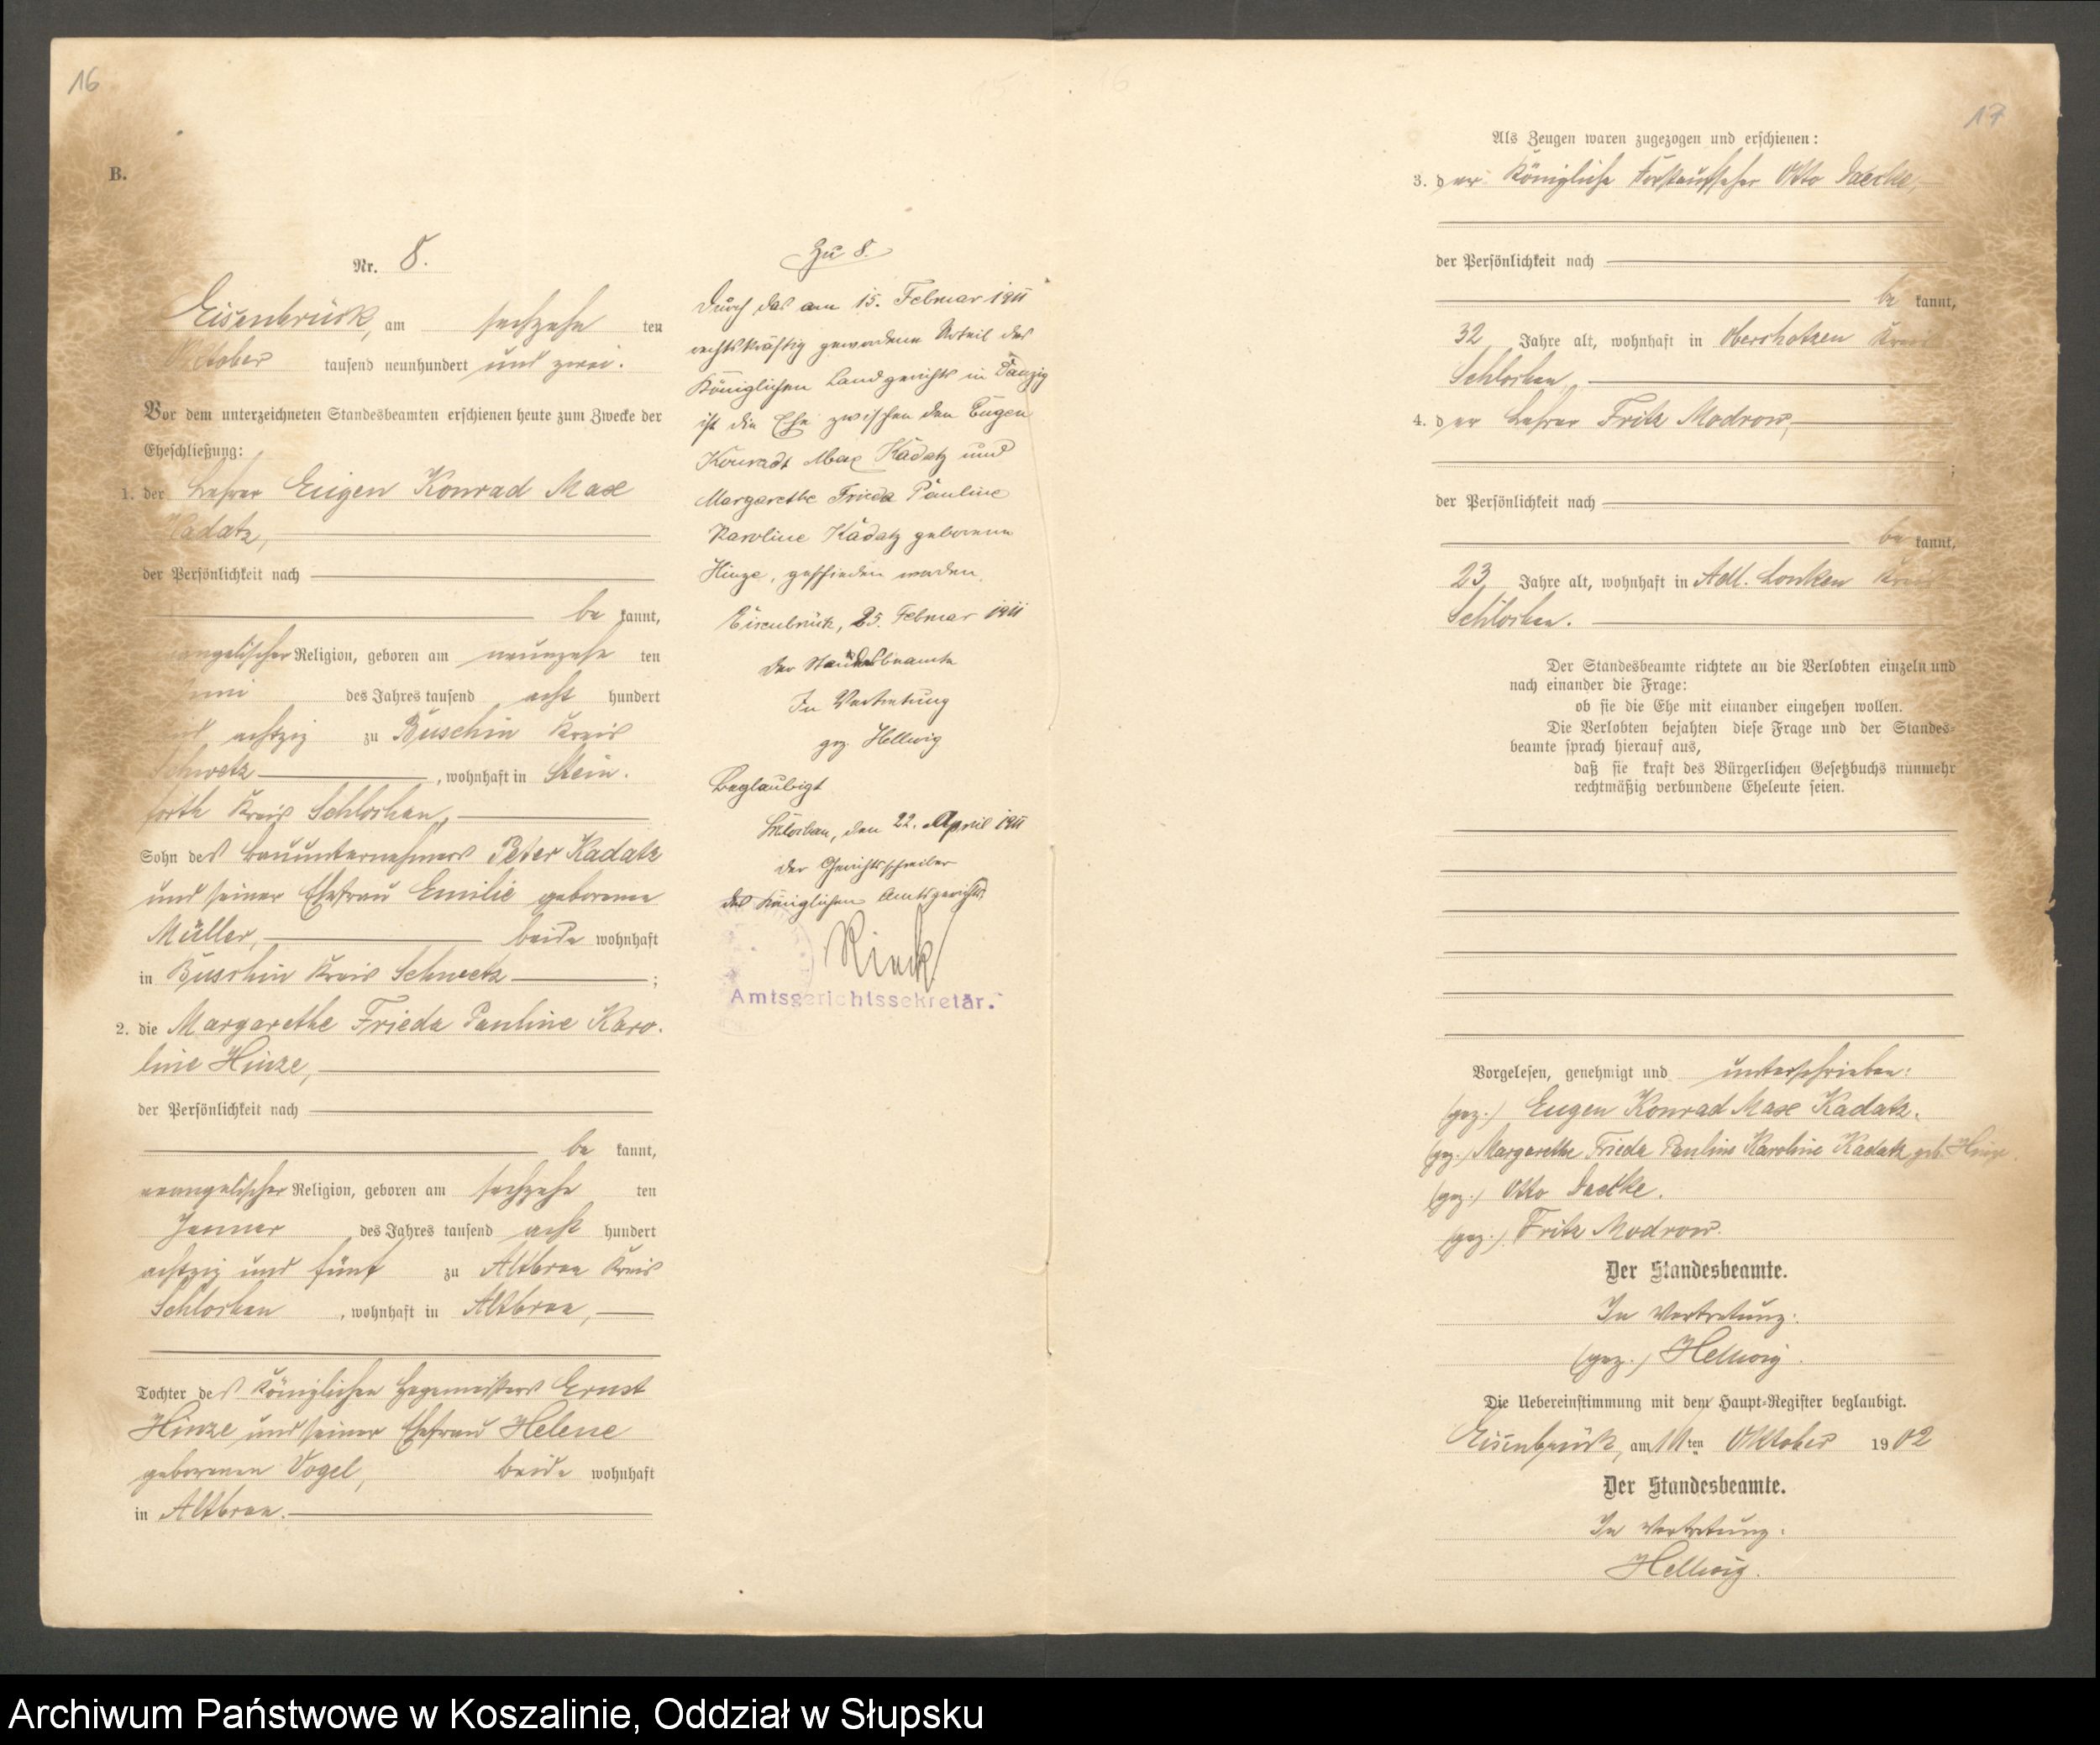 16
B.
Nr. 8.
Eisenbrück, am sechzehn ten
Oktober tausend neunhundert und zwei.
Vor dem unterzeichneten Standesbeamten erschienen heute zum Zwecke der
Eheschließung:
1. der Lehrer Eugen Konrad Max
Kadatz,
der Persönlichkeit nach
be kannt,
evangelischer Religion, geboren am neunzehn ten
des Jahres tausend acht hundert
achtzig zu Buschin Kreis
Schwetz, wohnhaft in Stein-
forth Kreis Schlochau,
Sohn des Bauunternehmers Peter Kadatz
und seiner Ehefrau Emilie geborene
Müller, beide wohnhaft
in Buschin Kreis Schwetz;
2. die Margarethe Frieda Pauline Karo-
line Hinze,
der Persönlichkeit nach
be kannt,
evangelischer Religion, geboren am sechzehn ten
Januar des Jahres tausend acht hundert
achtzig und fünf zu Altbraa Kreis
Schlochau, wohnhaft in Altbraa,
Tochter des Königlichen Hegemeisters Ernst
Hinze und seiner Ehefrau Helene
geborenen Vogel, beide wohnhaft
in Altbraa.
Zu 8.
Durch das am 15. Februar 1911
rechtskräftig gewordene Urteil des
Königlichen Landgerichts in Danzig
ist die Ehe zwischen den Eugen
Konradt Max Kadatz und
Margarethe Frieda Pauline
Karoline Kadatz geborene
Hinze, geschieden worden.
Eisenbrück, 25. Februar 1911
Der Standesbeamte
In Vertretung
gez. Hellwig
Beglaubigt
Schlochau, den 22. April 1911
Der Gerichtsschreiber
des Königlichen Amtsgerichts
Rieck
Amtsgerichtssekretär.
17
Als Zeugen waren zugezogen und erschienen:
3. der Königliche Forstaufseher Otto
der Persönlichkeit nach
be kannt,
32 Jahre alt, wohnhaft in Kreis
Schlochau,
4. der Lehrer Fritz Modrow,
;
der Persönlichkeit nach
be kannt,
23 Jahre alt, wohnhaft in Adl. Lonken Kreis
Schlochau.
Der Standesbeamte richtete an die Verlobten einzeln und
nach einander die Frage:
ob sie die Ehe mit einander eingehen wollen.
Die Verlobten bejahten diese Frage und der Standes-
beamte sprach hierauf aus,
daß sie kraft des Bürgerlichen Gesetzbuchs nunmehr
rechtmäßig verbundene Eheleute seien.
Vorgelesen, genehmigt und unterschrieben:
(gez.) Eugen Konrad Max Kadatz.
(gez.) Margarethe Frieda Pauline Karoline Kadatz geb. Hinze.
(gez.) Otto
(gez.) Fritz Modrow.
Der Standesbeamte.
In Vertretung:
(gez.) Hellwig.
Die Uebereinstimmung mit dem Haupt-Register beglaubigt.
Eisenbrück, am ten Oktober 1902
Der Standesbeamte.
In Vertretung:
Hellwig.
Archiwum Państwowe w Koszalinie, Oddział w Słupsku